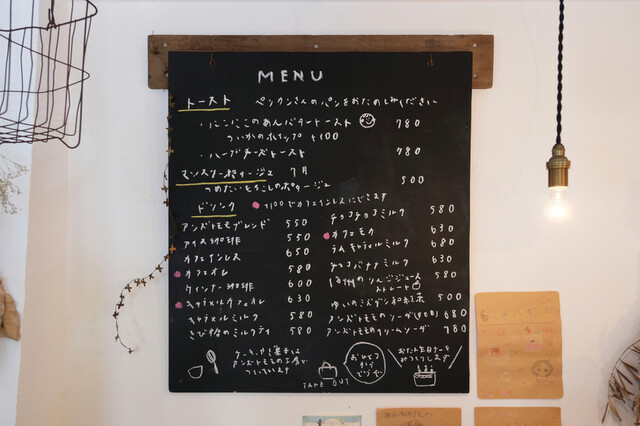 MENU
トースト ペンクンさんのパンをおたのしみください
ばんこのあんバタートースト 780
ついかのホイップ +100
・ハーブチーズトースト 780
マンスリーポタージュ 7月
つめたいとうもろこしのポタージュ 500
ドリンク +100でカフェインレスにできます
アンズトモモブレンド 550
アイス珈琲 550
カフェインレス 650
カフェオレ 580
ウィンナー珈琲 600
キャラメルカフェオレ 630
キャラメルミルク 580
きび糖のミルクティ 580
チョコチョコミルク 580
カフェモカ 630
ラムキャラメルミルク 680
チョコバナナミルク 630
信州のりんごジュース 580
ストレート
ゆいのミズデン和紅茶 500
アンズトモモのソーダ 680
アンズトモモのクリームソーダ 780
ケーキ、お菓子は
アンズトモモの工房で
つくっています
TAKE OUT
おひとつ
から
どうぞ
お誕生日ケーキ
みつくりします